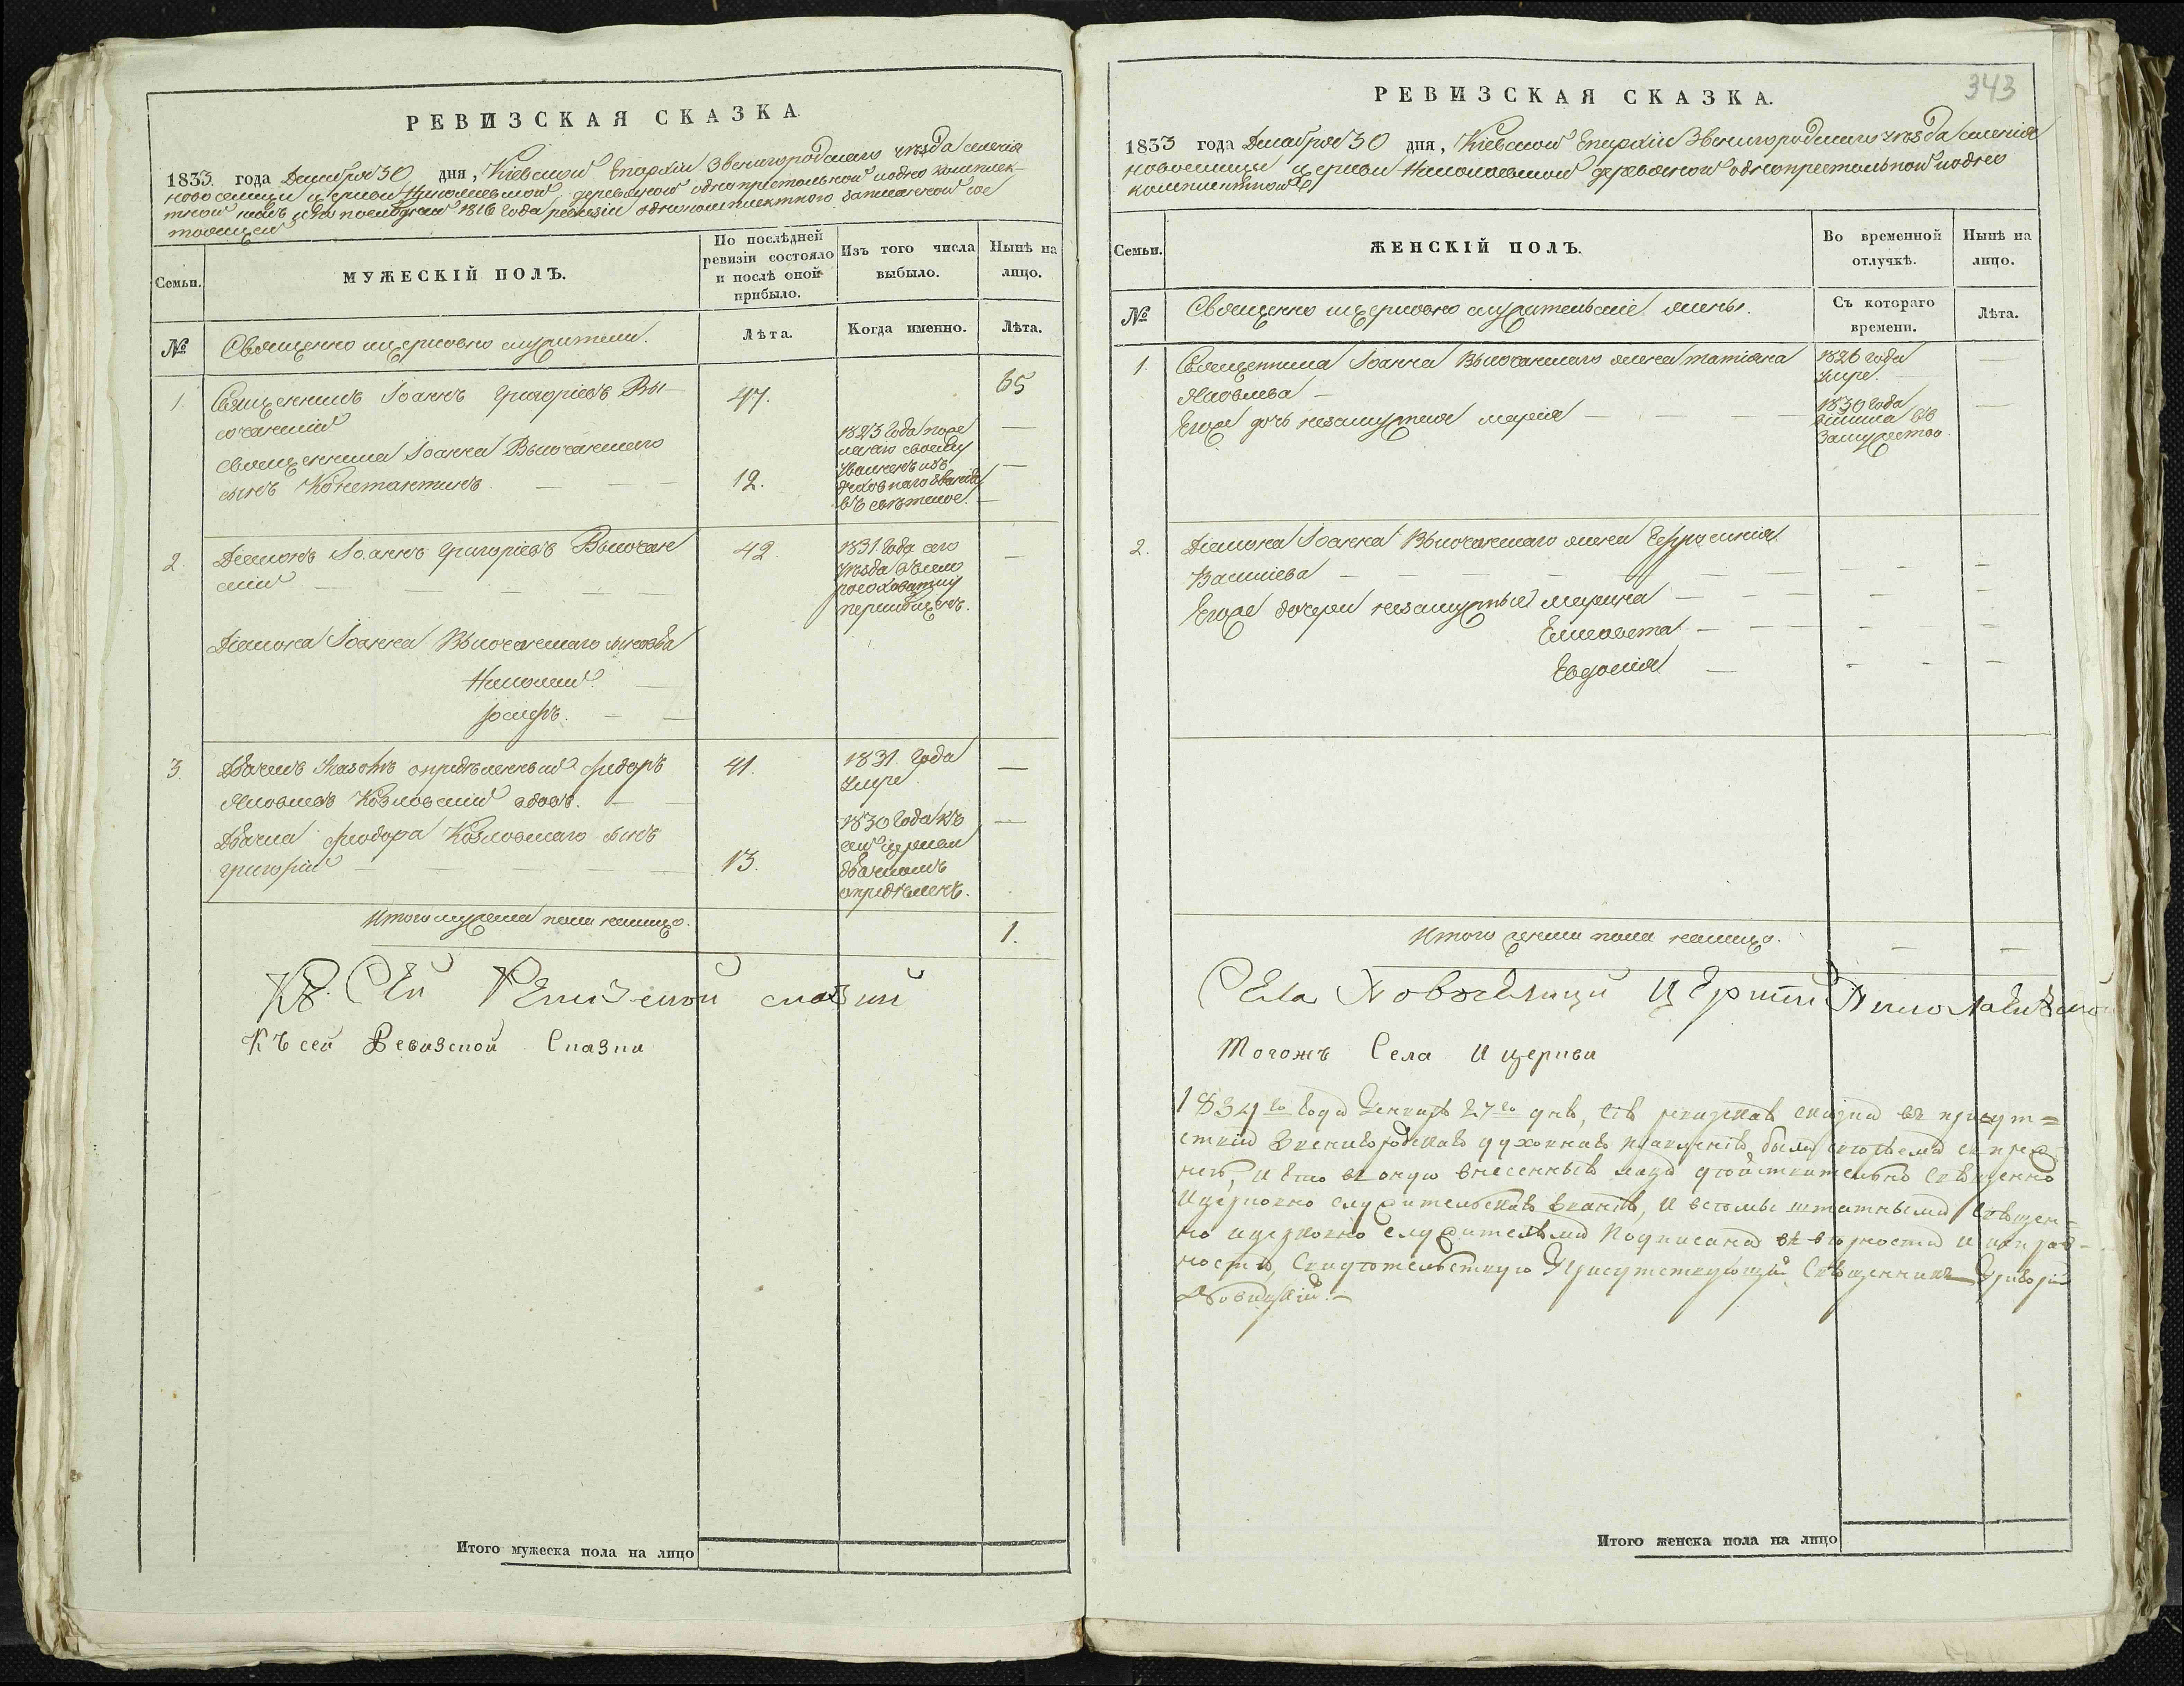 РЕВИЗСКАЯ СКАЗКА.
1833. года Декабря 30 дня, Кіевской Епархіи Звенигородскаго уѣзда селенія
новоселицы церкви Николаевской деревяной однопрестольной и одно комплек-
тной какъ и по последней 1816 года ревизіи однокомплектного записанной сос
тоящей
Семьи.
МУЖЕСКІЙ ПОЛЪ.
По послѣдней
ревизіи состояло
и послѣ оной
прибыло.
Изъ того числа
выбыло.
Нынѣ на
лицо.
№
Священно и церковно служители.
Лѣта.
Когда именно.
Лѣта.
1. Священникъ Іоаннъ Григоріевъ Вы- 47. 65
сочанскій
священника Іоанна Высочанскаго
сынъ Константинъ 12.
1823 года по же
ланію своему
уволненъ изъ
духовнаго званія
въ светское.
2. Діаконъ Іоаннъ Григоріевъ Высочан 42
скій
1831. года сего
уѣзда въ село
перемѣщенъ.
Діакона Іоанна Высочанскаго сыновья
Николай
Іосифъ.
3. Дьячекъ опредѣленный Федоръ 41.
Яковлевъ Козловскій вдовъ.
1831. года
умре
Дьячка Феодора Козловскаго сынъ
Григорій 13.
1830 года къ
сей церкви
дьячкомъ
опредѣленъ.
Итого мужеска пола налицо. 1.
Къ Сей Ревизской сказки
Къ сей Ревизской Сказки
Итого мужеска пола на лицо
343
РЕВИЗСКАЯ СКАЗКА.
1833 года Декабря 30 дня, Кіевской Епархіи Звенигородскаго уѣзда селенія
новоселицы церкви Николаевской деревяной однопрестольной и одно
комплектной
Семьи.
ЖЕНСКІЙ ПОЛЪ.
Во временной
отлучкѣ.
Нынѣ на
лицо.
№
Священно и церковно служительскіе жены.
Съ котораго
времени.
Лѣта.
1. Священника Іоанна Высочанскаго жена татіана
Яковлева
1826 года
умре.
Егоже дочь незамужняя марія
1830 года
вышла въ
замужество
2. Діакона Іоанна Высочанскаго жена Ефросинія
Василіева
Егоже дочери незамужныя марина
Елисавета
Евдокія
Итого женска пола налицо.
Села Новоселици Церкви Николаевской
Тогожъ Села и церкви
1834 го года Генваря 27 го дня, сія ревизская сказка въ присут=
ствіи Звенигородскаго духовнаго правленія
и что въ оную внесенныя лица действительно Священно
и церковно служительскаго званія, и всѣмы штатными Священ-
но и церковно служителями Подписана въ верности и исправ-
ности, Свидетельствую Присутствующій Священникъ Григорій
Итого женска пола на лицо